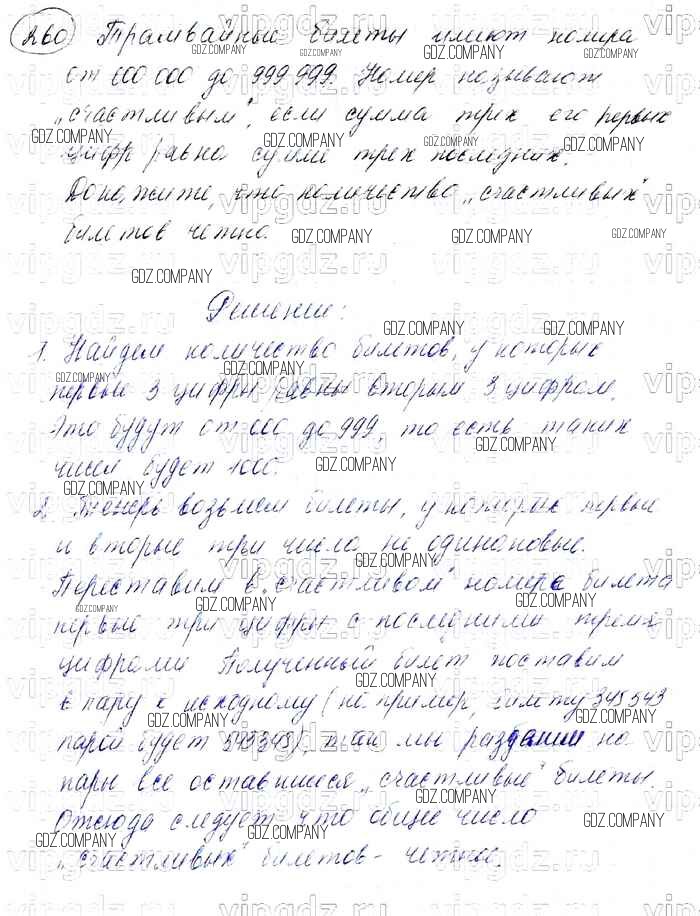 260 Трамвайные билеты имеют номера
от 000 000 до 999 999. Номер называют
„счастливым", если сумма трех его первых
цифр равна сумме трех последних.
Докажите, что количество „счастливых"
билетов четно.
Решение:
1. Найдем количество билетов, у которых
первые 3 цифры равны вторым 3 цифрам.
Это будут от 000 до 999, то есть таких
чисел будет 1000.
2. Теперь возьмем билеты, у которых первые
и вторые три числа не одинаковые.
Переставим в „счастливом" номере билета
первые три цифры с последними тремя
цифрами. Полученный билет поставим
в пару к исходному (например, билету 345543
парой будет 543345), так мы разбили на
пары все оставшиеся „счастливые" билеты.
Отсюда следует, что общее число
„счастливых" билетов - четное.
GDZ.COMPANY
vipgdz.ru